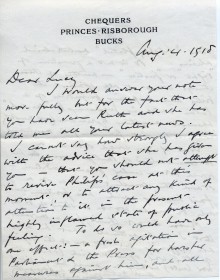 CHEQUERS
PRINCES·RISBOROUGH
BUCKS
Aug. 4. 1918
Dear Lucy
I would answer your note
more fully but for the fact that
you have seen Ruth and she has
told me all your latest news.
I cannot say how strongly I agree
with the advice that she has given
you that you should not attempt
to revive Philip's case at this
moment or to attract any kind of
attention to it in the present
highly inflamed state of public
feeling. To do so would have only
one effect: a fresh agitation in
Parliament & the Press for harsher
measures against him, and all